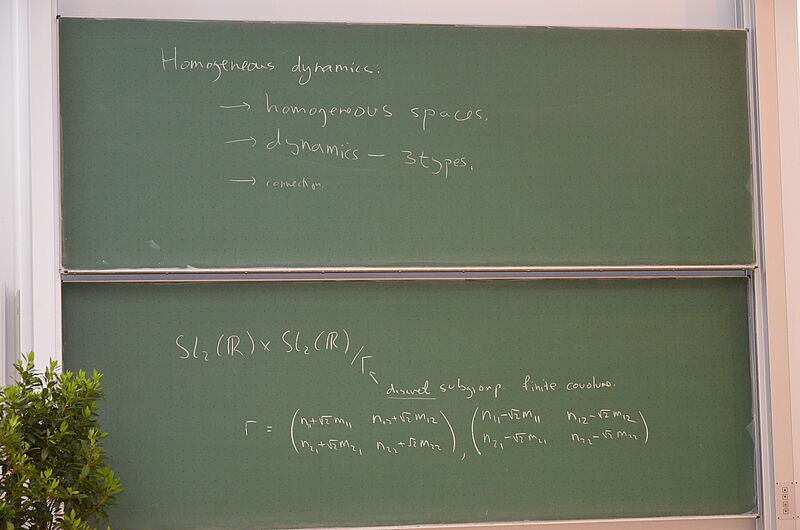 Homogeneous dynamics:
→ homogeneous spaces.
→ dynamics – 3 types.
→ connection.
SL₂(ℝ) × SL₂(ℝ)/Γ
discret subgroup. finite covolume.
Γ = (n₁₁+√2m₁₁ n₁₂+√2m₁₂), (n₁₁-√2m₁₁ n₁₂-√2m₁₂)
(n₂₁+√2m₂₁ n₂₂+√2m₂₂) (n₂₁-√2m₂₁ n₂₂-√2m₂₂)